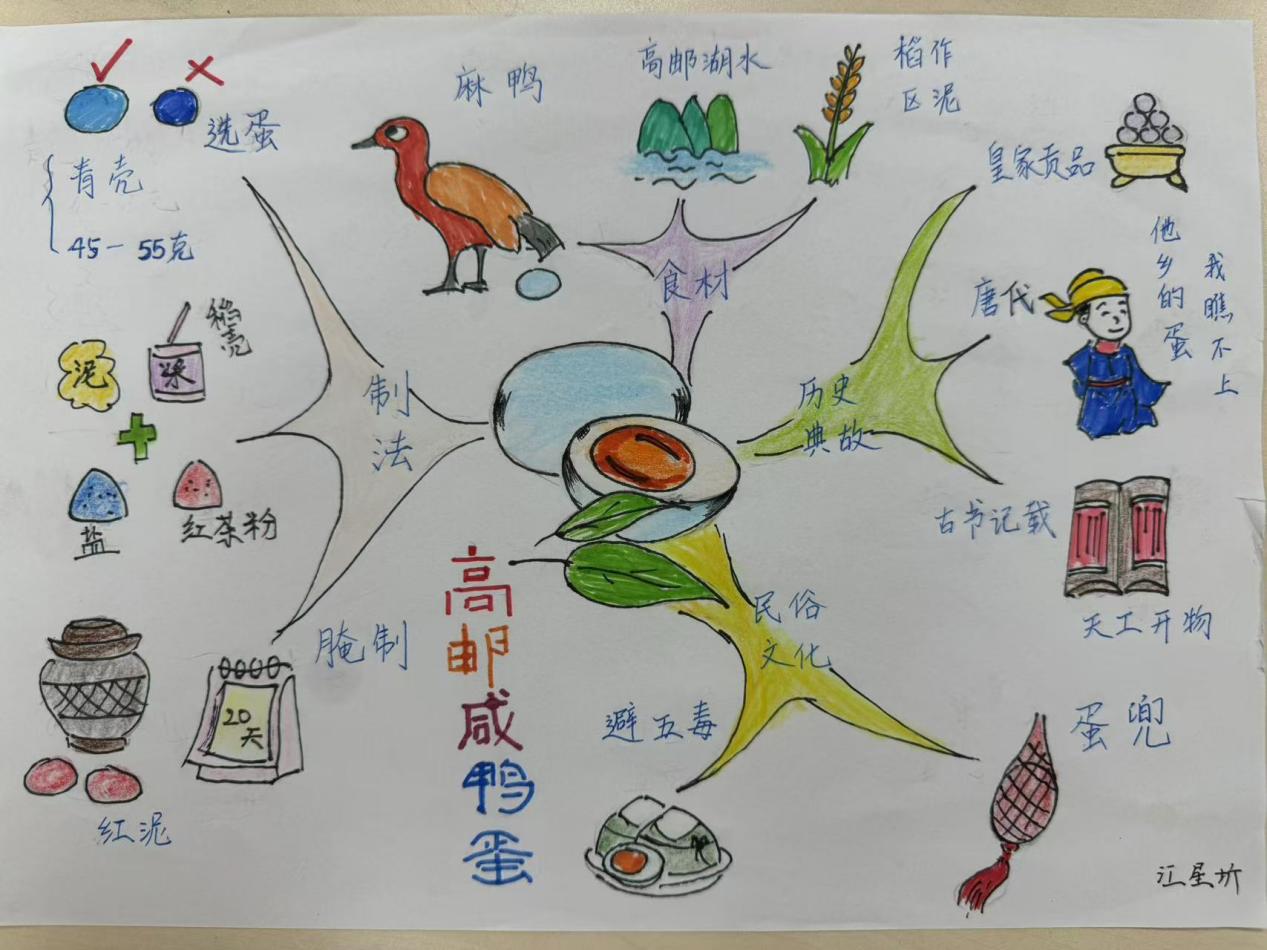 选蛋
青壳
45-55克
稻壳
泥
浆
盐
红茶粉
腌制
20
天
红泥
制
法
麻鸭
高邮湖水
稻作
区泥
食材
皇家贡品
唐代
他乡的蛋
我瞧不上
历史
典故
古书记载
天工开物
民俗
文化
避五毒
蛋兜
高邮咸鸭蛋
江星圻